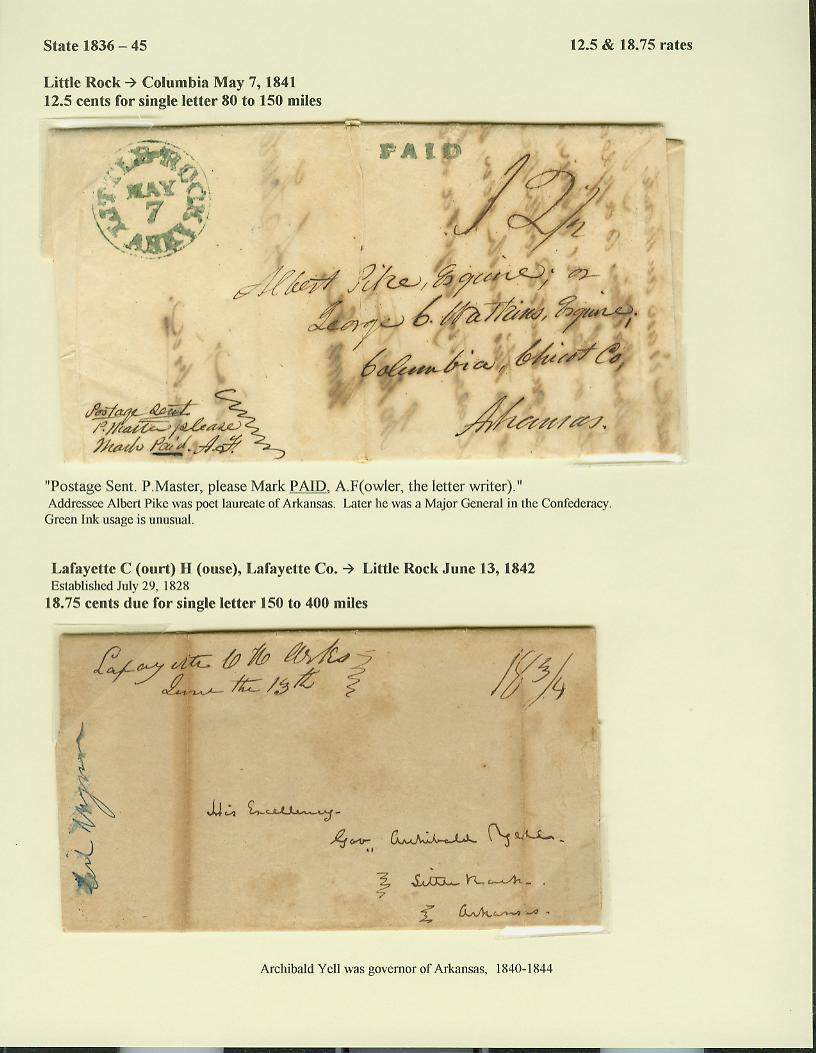 State 1836 – 45
12.5 & 18.75 rates
Little Rock → Columbia May 7, 1841
12.5 cents for single letter 80 to 150 miles
LITTLE ROCK ARK
MAY
7
PAID
12/2
Albert Pike, Esquire; or
George C. Watkins, Esquire;
Columbia, Chicot Co,
Arkansas.
Postage Sent.
P. Master please
Mark Paid. A.F.
"Postage Sent. P.Master, please Mark PAID, A.F(owler, the letter writer)."
Addressee Albert Pike was poet laureate of Arkansas. Later he was a Major General in the Confederacy.
Green Ink usage is unusual.
Lafayette C (ourt) H (ouse), Lafayette Co. → Little Rock June 13, 1842
Established July 29, 1828
18.75 cents due for single letter 150 to 400 miles
Lafayette C H Arks
June the 13th
18 3/4
His Excellency
Gov,, Archibald Yell
Little Rock
Arkansas.
Archibald Yell was governor of Arkansas, 1840-1844